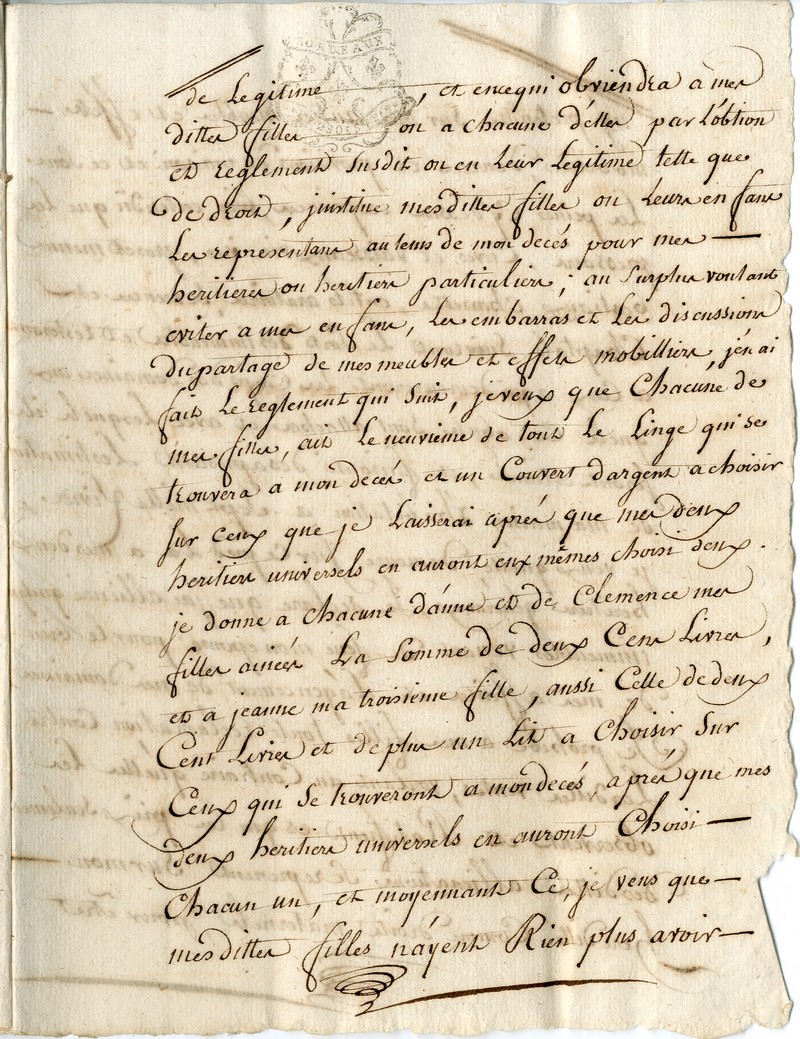 BORDEAUX
de Legitime, et en ce qui obviendra a mes
dittes filles ou a chacune d'elles par L'obtion
et reglement susdit ou en Leur Legitime telle que
de droit, jinstitue mesdittes filles ou Leurs enfans
Les representans au tems de mon decés pour mes
heritieres ou heritiers particuliers; au surplus voulant
eviter a mes enfans, Les embarras et Les discussions
du partage de mes meubles et effets mobilliers, j'en ai
fait Le reglement qui suit, je veux que Chacune de
mes filles, ait Le neuvieme de tout Le Linge qui se
trouvera a mon decés et un Couvert dargent a choisir
sur ceux que je Laisserai aprés que mes deux
heritiers universels en auront eux mêmes choisi deux.
je donne a chacune d'anne et de Clemence mes
filles ainées La somme de deux Cens Livres,
et a jeanne ma troisieme fille, aussi Celle de deux
Cent Livres et de plus un Lit a Choisir sur
Ceux qui se trouveront a mon decés, aprés que mes
deux heritiers universels en auront Choisi
Chacun un, et moyennant Ce, je veus que
mesdittes filles n'ayent Rien plus avoir